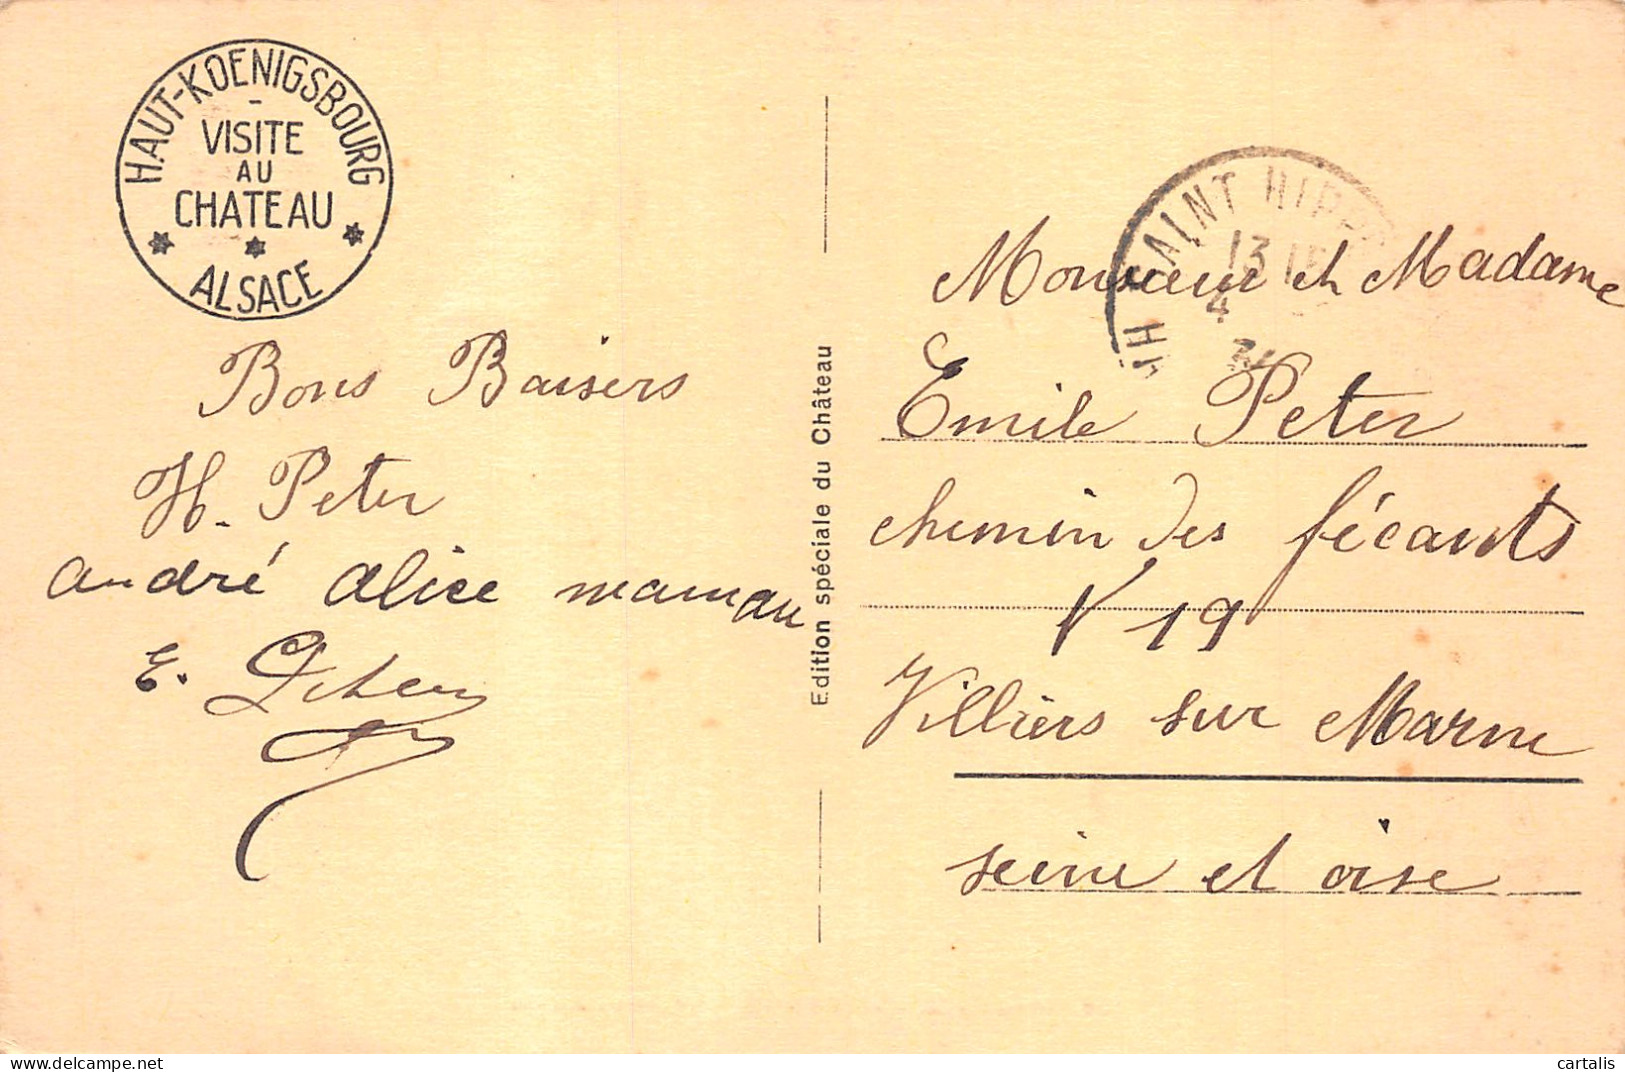 HAUT-KOENIGSBOURG
-
VISITE
AU
CHATEAU
ALSACE
Bons Baisers
H. Peter
andré alice maman
E.
Edition spéciale du Château
SAINT HIPP
13
4
Monsieur et Madame
Emile Peter
chemin des fécants
N 19
Villiers sur Marne
seine et oise
delcampe.net
cartalis